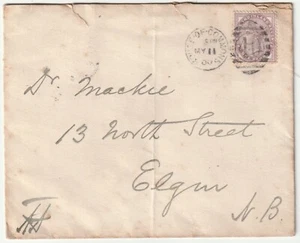 Dr. Mackie
13 North Street
Elgin
N.B.